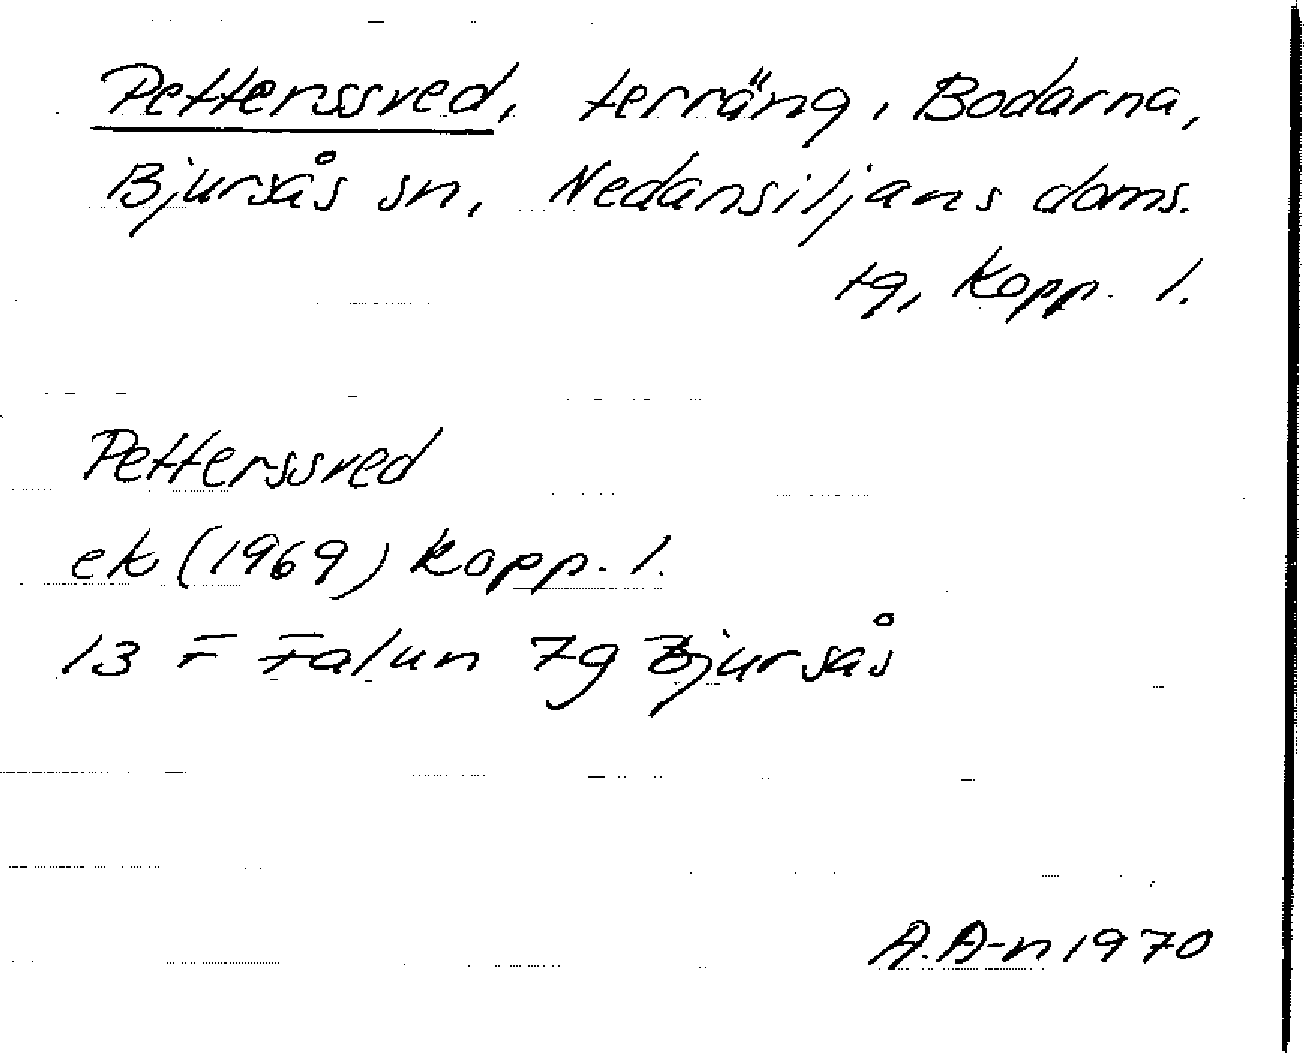 Petterssved, terräng, Bodarna,
Bjursås sn, Nedansiljans doms.
tg, Kopp. l.
Petterssved
ek (1969) Kopp. l.
13 F Falun 7g Bjursås
A.A-n 1970